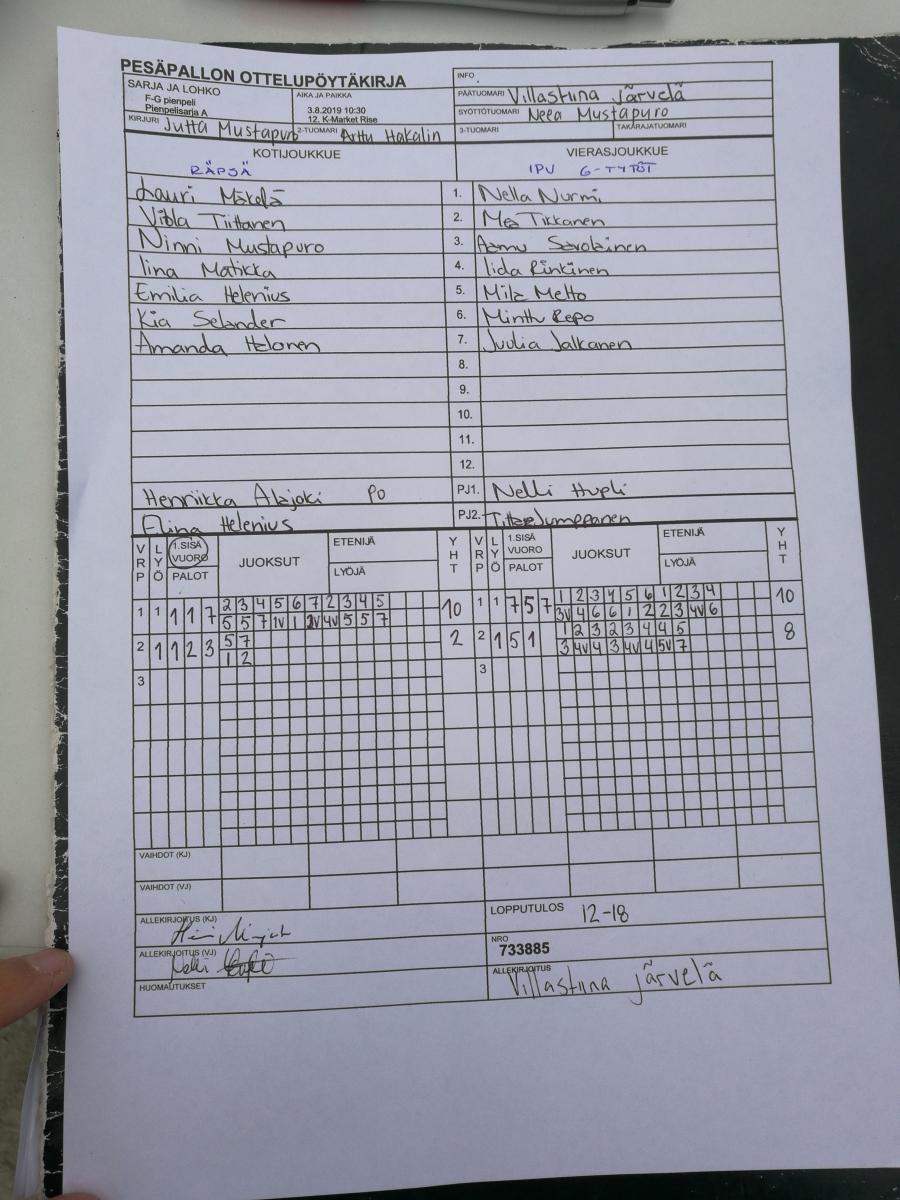 PESÄPALLON OTTELUPÖYTÄKIRJA
INFO
SARJA JA LOHKO
F-G pienpeli
Pienpelisarja A
AIKA JA PAIKKA
3.8.2019 10:30
12. K-Market Rise
PÄÄTUOMARI Villastiina Järvelä
SYÖTTÖTUOMARI Neea Mustapuro
KIRJURI Jutta Mustapuro
2-TUOMARI Arttu Hakalin
3-TUOMARI
TAKARAJATUOMARI
KOTIJOUKKUE
RÄPSÄ
VIERASJOUKKUE
IPU G-TYTÖT
Lauri Mäkelä 1. Nella Nurmi
Viola Tiittanen 2. Mea Tikkanen
Ninni Mustapuro 3. Aamu Savolainen
Iina Matikka 4. Iida Rinkinen
Emilia Helenius 5. Mila Metto
Kia Selander 6. Minttu Repo
Amanda Halonen 7. Juulia Jalkanen
8.
9.
10.
11.
12.
Henriikka Alajoki PO PJ1. Nelli Hupli
Elina Helenius PJ2. Jumppanen
VRP LYÖ 1.SISÄ VUORO PALOT JUOKSUT ETENIJÄ LYÖJÄ YHT VRP LYÖ 1.SISÄ VUORO PALOT JUOKSUT ETENIJÄ LYÖJÄ YHT
1 1 1 1 7 2 3 4 5 6 7 2 3 4 5 10 1 1 7 5 7 1 2 3 4 5 6 1 2 3 4 10
5 5 7 1V 1 2V 4V 5 5 7 3V 4 6 6 1 2 2 3 4V 6
2 1 1 2 3 5 7 2 2 1 5 1 1 2 3 2 3 4 4 5 8
1 2 3 4V 4 3 4V 4 5V 7
3 3
VAIHDOT (KJ)
VAIHDOT (VJ)
ALLEKIRJOITUS (KJ)
LOPPUTULOS 12-18
ALLEKIRJOITUS (VJ)
NRO
733885
HUOMAUTUKSET
ALLEKIRJOITUS
Villastiina Järvelä